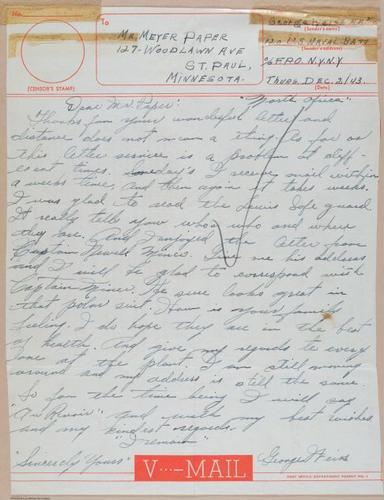 No.
To
MR. MEYER PAPER
127-WOODLAWN AVE
ST. PAUL,
MINNESOTA.
(CENSOR'S STAMP)
GEORGE
(Sender's name)
120 U.S. NAVAL BATT
(Sender's address)
c/o F.P.O. N.Y. N.Y.
THURS. DEC. 2/43.
(Date)
Dear Mr. Paper: "North Africa"
Thanks for your wonderful letter and
distance does not mean a thing. As far as
this letter service is a problem at diff-
erent times. days I receive mail within
a weeks time and then again it takes weeks.
I was glad to read the Lewis life guard
It really tells you who's who and where
they are. And I enjoyed the letter from
Captain Miner. Give me his address
and I will be glad to correspond with
Captain Miner. He sure looks great in
that polar suit. How is your family
feeling. I do hope they are in the best
of health. And give my regards to every
one at the plant. I am still moving
around and my address is still the same.
So for the time being I will say
"Au Revoir" and with my best wishes
and my kindest regards.
"I remain"
"Sincerely Yours"
George
V···—MAIL
POST OFFICE DEPARTMENT PERMIT NO.